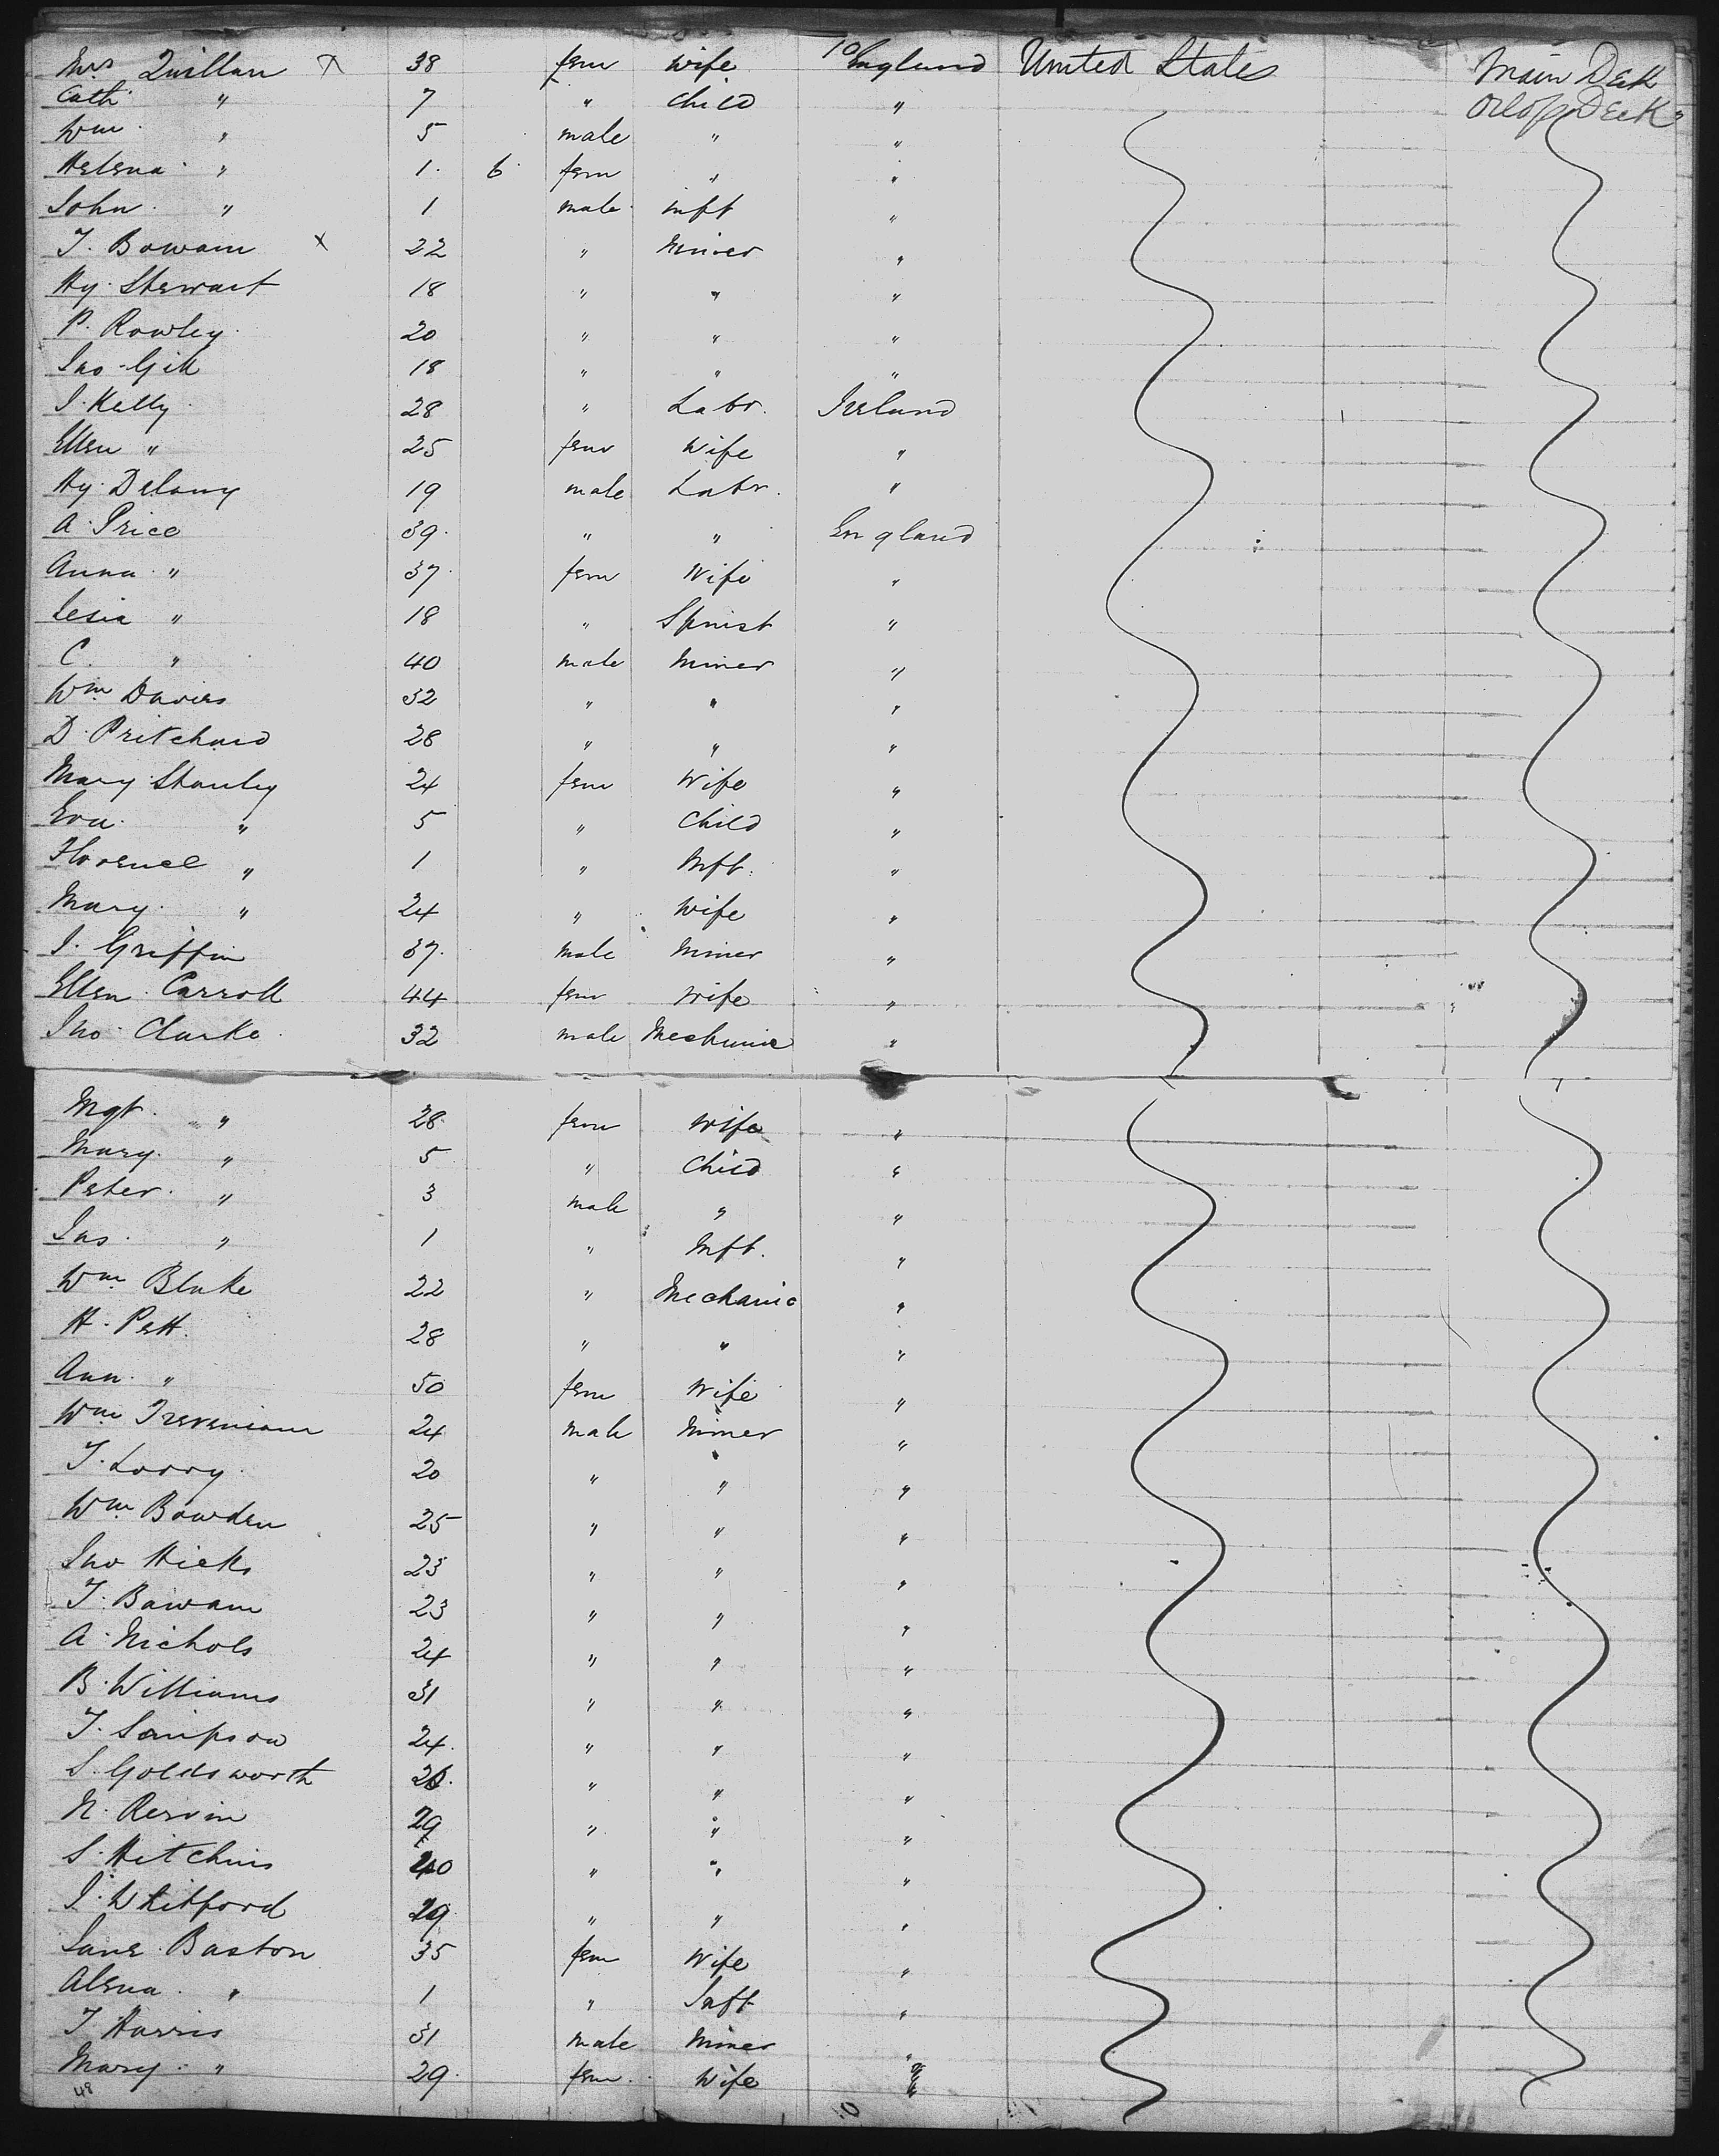 Mrs Quillan x 38 fem wife 10 England United States Main Deck
Cath " 7 " Child " Orlop Deck
Wm " 5 male " "
Helena " 1 6 fem " "
John " 1 male inft "
T. Bowam x 22 " Miner "
Hy. Stewart 18 " " "
P. Rowley 20 " " "
Jno Gill 18 " " "
J. Kelly 28 " Labr. Ireland
Ellen " 25 fem Wife "
Hy. Delany 19 male Labr. "
A. Price 39 " " England
Anna " 37 fem Wife "
" 18 " Spinst "
C. " 40 male Miner "
Wm Davies 32 " " "
D. Pritchard 28 " " "
Mary Stanley 24 fem Wife "
Eva " 5 " Child "
Florence " 1 " Inft. "
Mary " 24 " Wife "
J. Griffin 37 male Miner "
Ellen Carroll 44 fem Wife "
Jno Clarke 32 male Mechanic "
Mgt. " 28 fem Wife "
Mary " 5 " Child "
Peter " 3 male " "
Jas. " 1 " Inft. "
Wm Blake 22 " Mechanic "
H. Pett 28 " " "
Ann " 50 fem Wife "
Wm 24 male Miner "
T. Lorry 20 " " "
Wm Bowden 25 " " "
Jno Hicks 23 " " "
T. Bawam 23 " " "
A. Nichols 24 " " "
B. Williams 31 " " "
T. Simpson 24 " " "
S. Goldsworth " " "
N. 29 " " "
S. Hitchins 40 " " "
J. Whitford 29 " " "
Jane Baston 35 fem Wife "
Alena " 1 " Inft "
T Harris 31 male Miner "
Mary " 29 fem Wife "
48